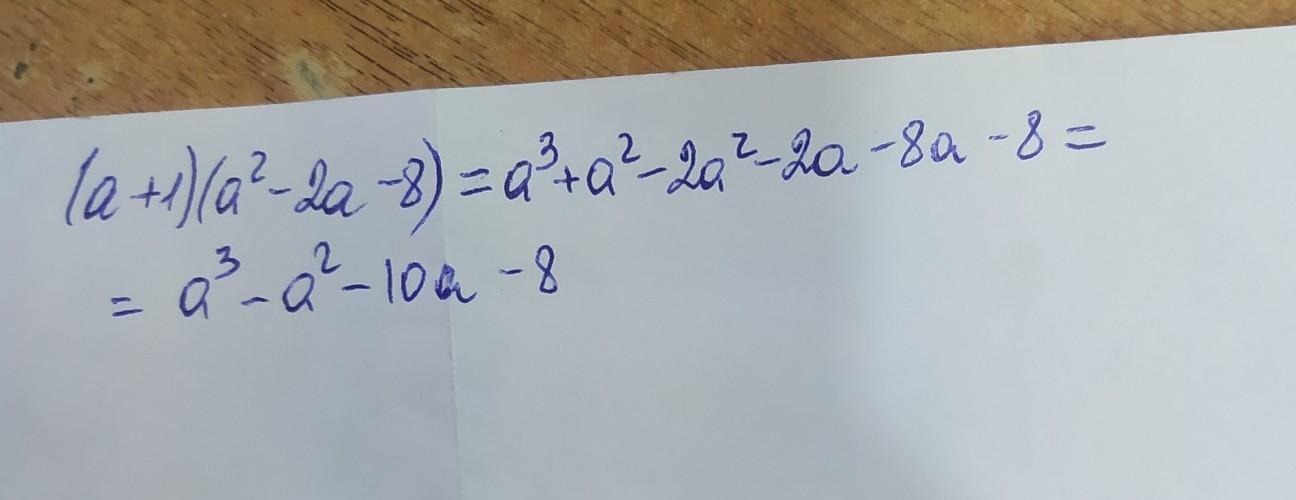 (a+1)(a²-2a-8)=a³+a²-2a²-2a-8a-8=
= a³-a²-10a-8